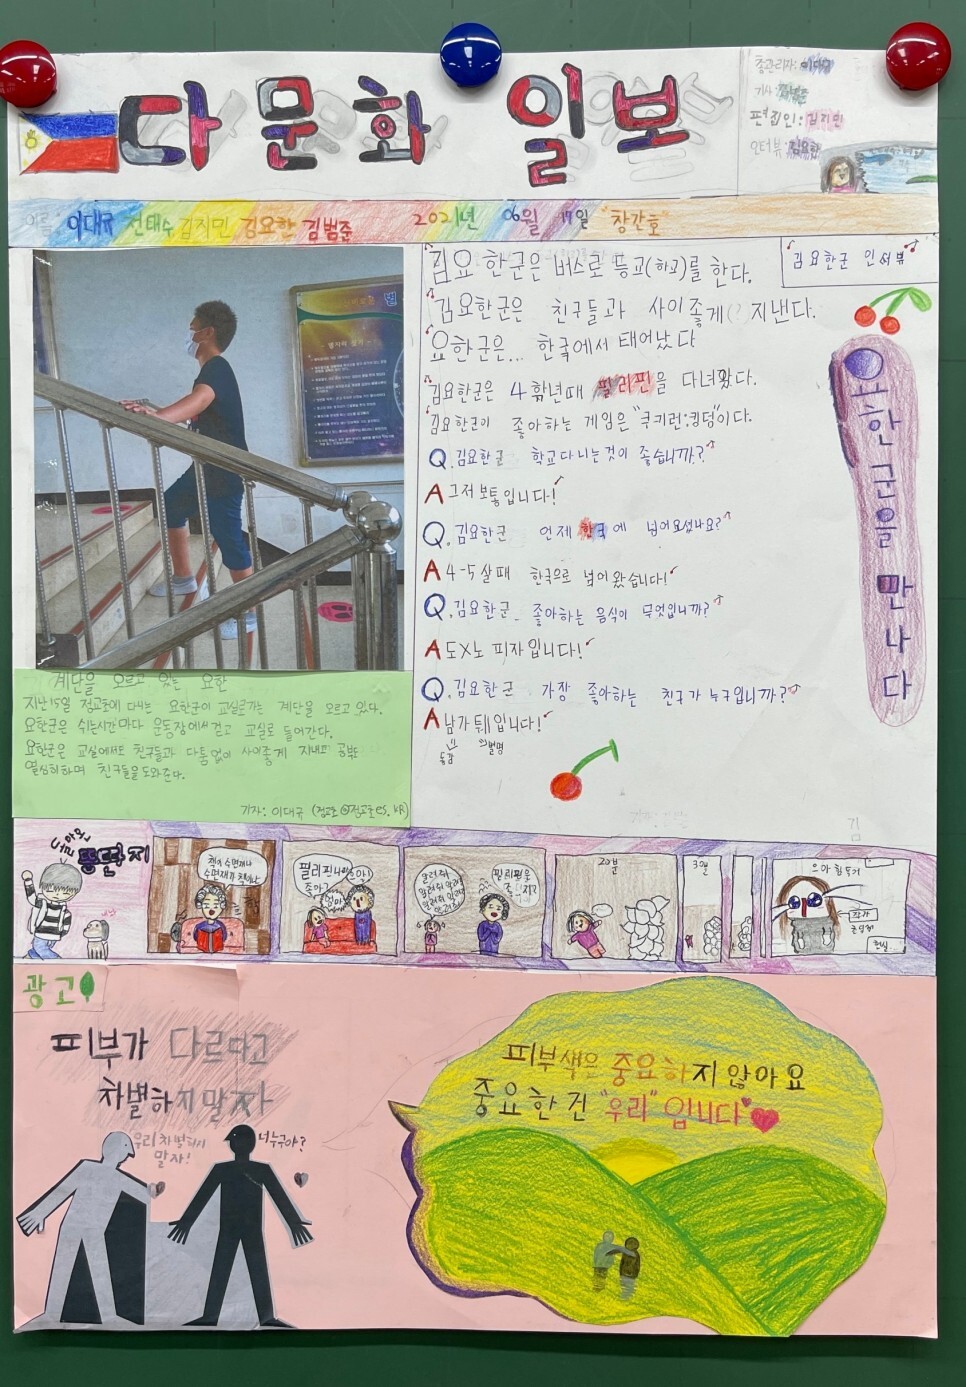 다문화 일보
총관리자: 이대규
기사:
편집인: 김지민
인터뷰: 김요한
이름: 이대규 전태수 김지민 김요한 김범준 2021년 06월 17일 "창간호"
김요한군 인터뷰
김요한군은 버스로 등교(하교)를 한다.
김요한군은 친구들과 사이좋게(?) 지낸다.
요한군은... 한국에서 태어났다
김요한군은 4학년때 필리핀을 다녀왔다.
김요한군이 좋아하는 게임은 "쿠키런:킹덤"이다.
Q.김요한군 학교다니는것이 좋습니까?
A 그저 보통입니다!
Q.김요한군 언제 한국에 넘어오셨나요?
A 4-5살때 한국으로 넘어왔습니다!
Q.김요한군 좋아하는 음식이 무엇입니까?
A 도X노 피자입니다!
Q.김요한군 가장 좋아하는 친구가 누구입니까?
A 남가튀입니다!
별명
요한군을 만나다
계단을 오르고 있는 요한
지난15일 점교초에 다니는 요한군이 교실로가는 계단을 오르고 있다.
요한군은 쉬는시간마다 운동장에서걷고 교실로 들어간다.
요한군은 교실에서도 친구들과 다툼없이 사이좋게 지내고 공부도
열심히하며 친구들을도와준다.
기자: 이대규 (점교초@점교초es.kr)
똥딴지
책이 수면제냐
수면제가 책이냐
필리핀
좋아?
엄마
알려줘
알려줘
필리핀은
20분
30분
으아 힘들기
작가
광고
피부가 다르다고
차별하지말자
우리 차별하지
말자!
너누구야?
피부색은 중요하지 않아요
중요한 건 "우리"입니다